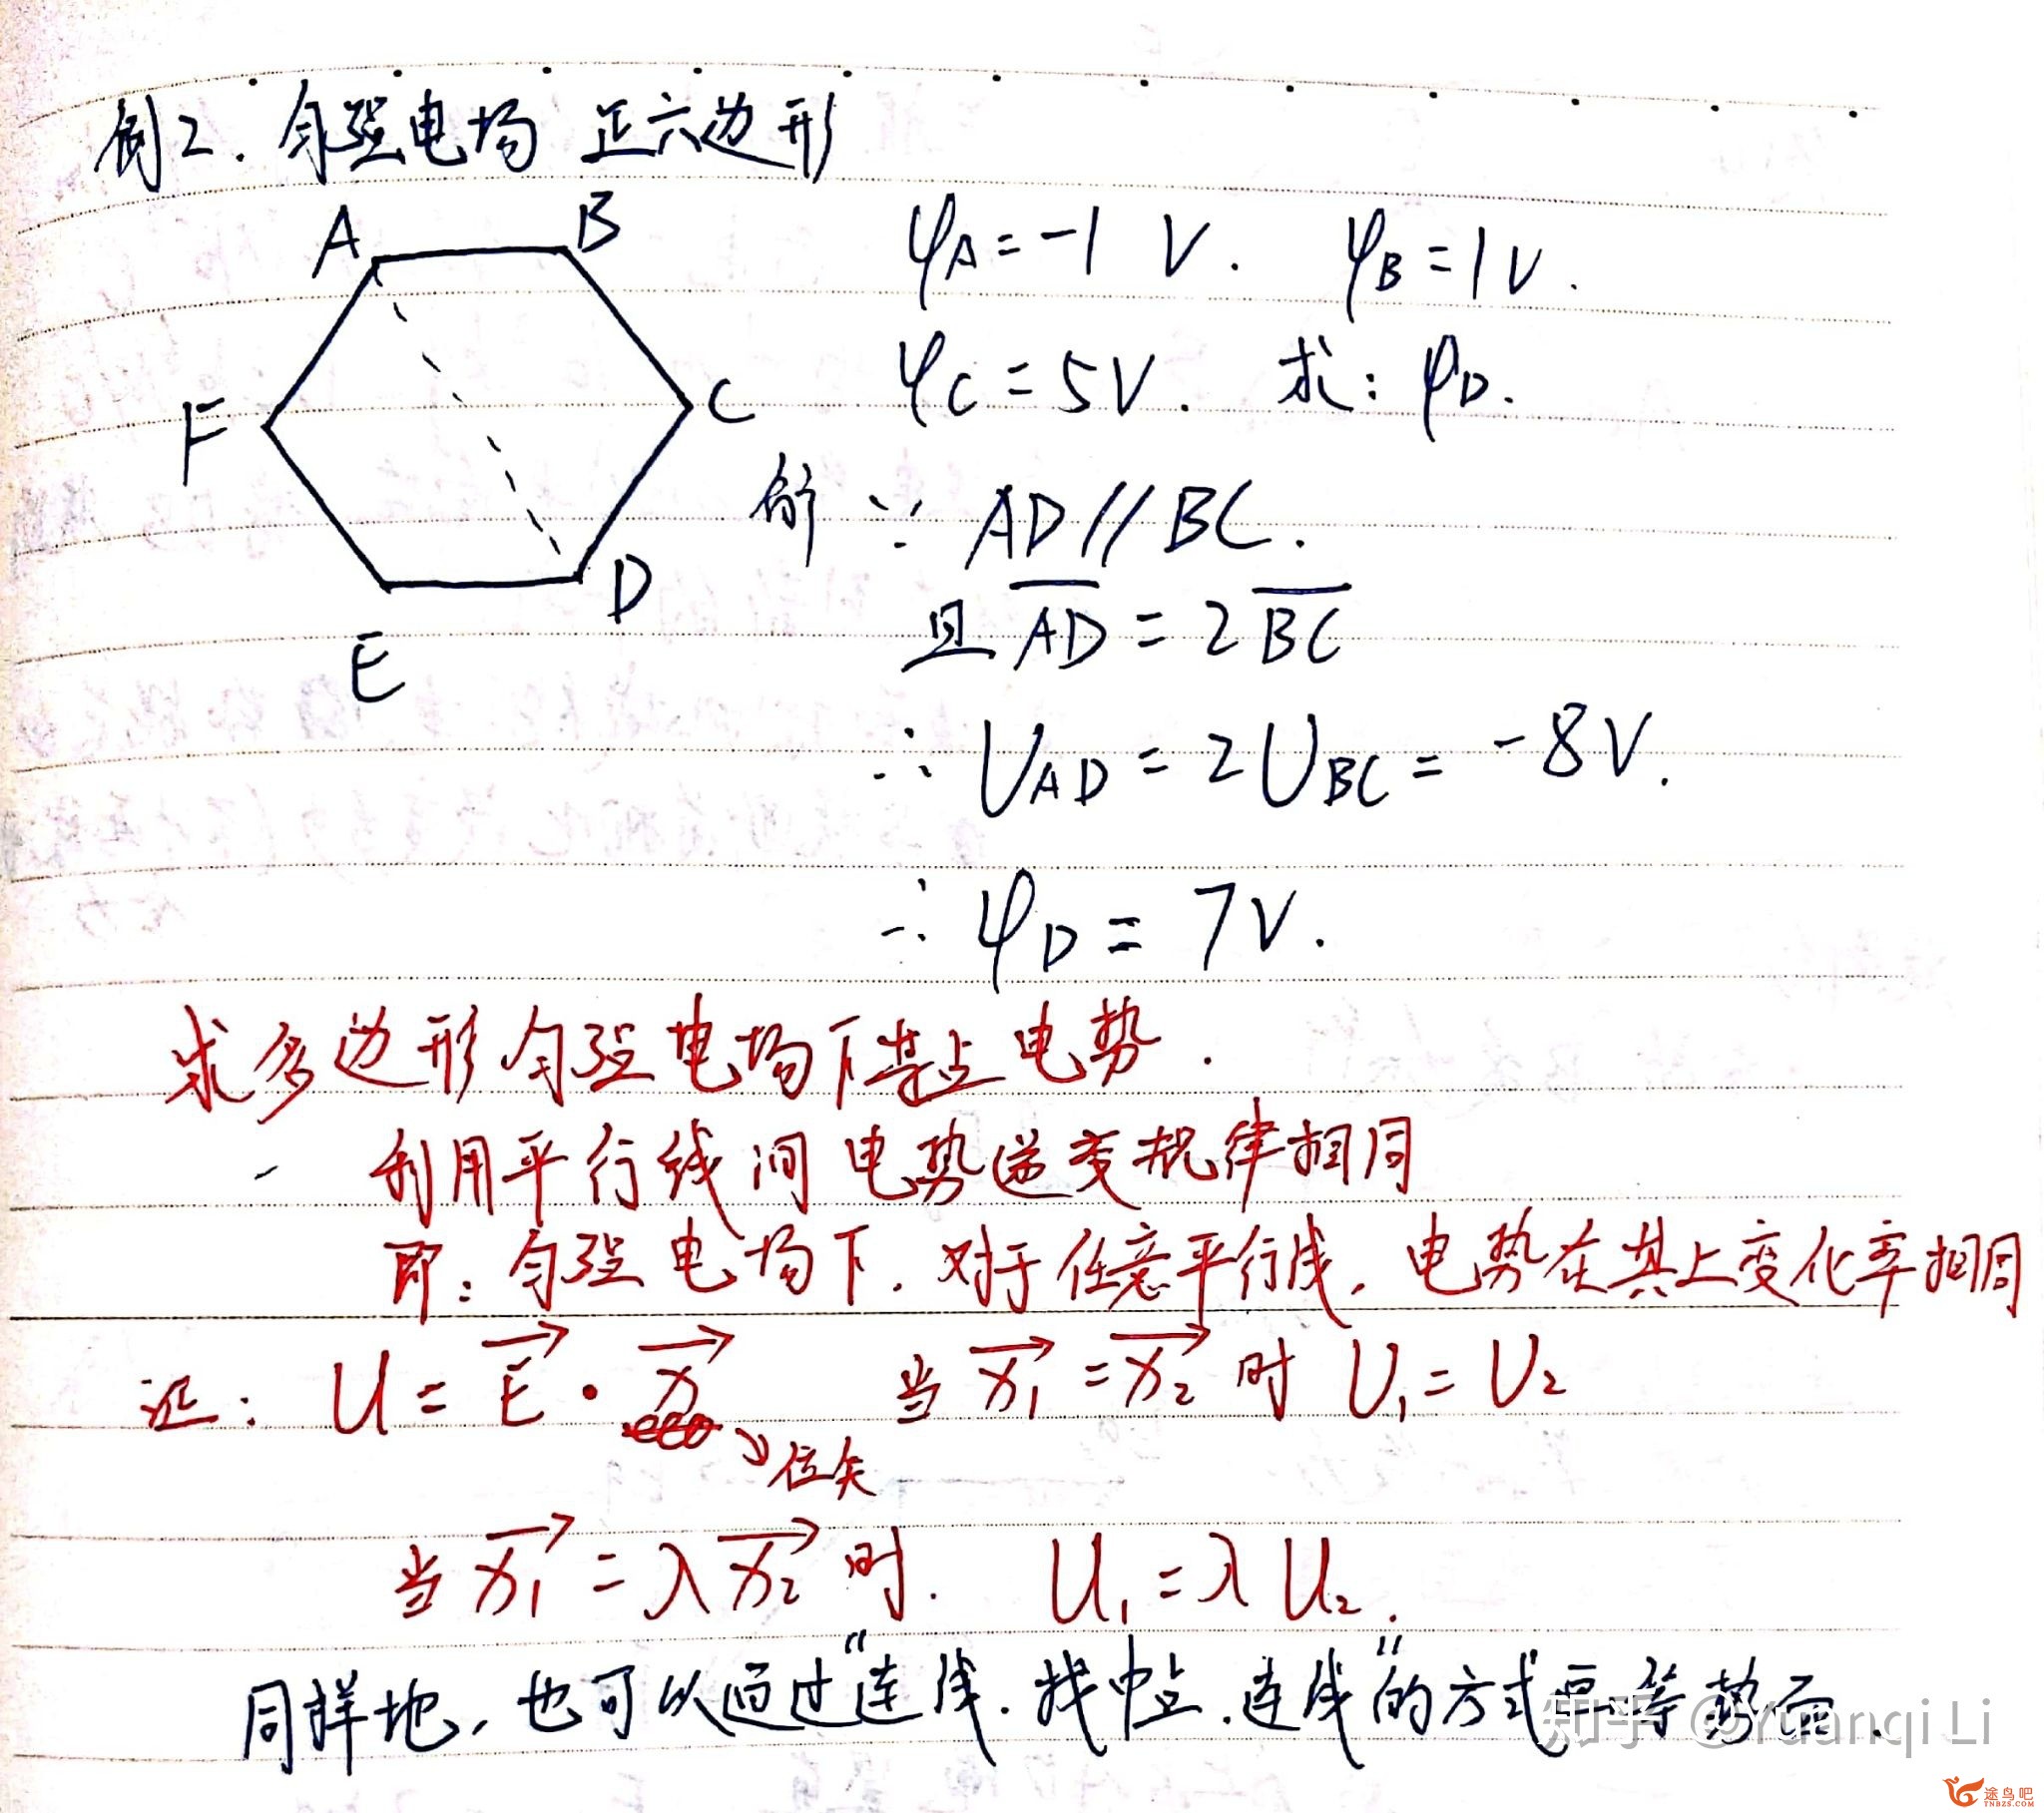 例2. 匀强电场 正六边形
A B
φA=-1 V. φB=1V.
φC=5V. 求: φD.
F C
解 ∵ AD//BC.
D
且 AD = 2BC
E
∴ UAD = 2UBC = -8V.
∴ φD = 7V.
求多边形匀强电场下某点电势.
利用平行线间电势递变规律相同
即: 匀强电场下. 对于任意平行线, 电势在其上变化率相同
证: U = E⃗ · x⃗ 当 x₁⃗ = x₂⃗ 时 U₁ = U₂
位矢
当 x₁⃗ = λ x₂⃗ 时. U₁ = λ U₂.
同样地, 也可以通过"连线. 找中点. 连线"的方式 等势面.
知乎 @Yuanqi Li
途鸟吧
TNBZS.COM